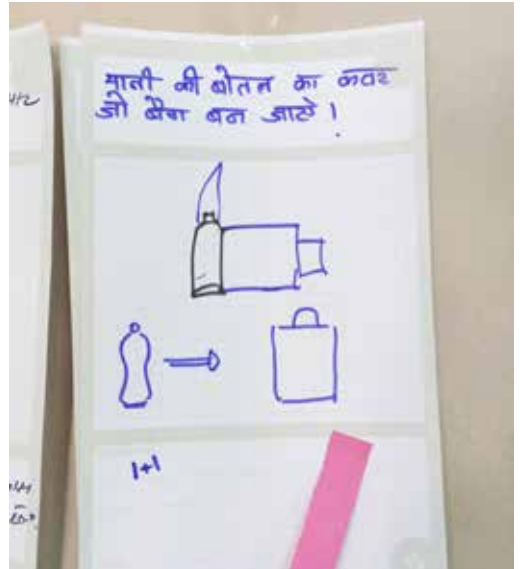 पानी की बोतल का कवर
जो बैग बन जाये !
1+1